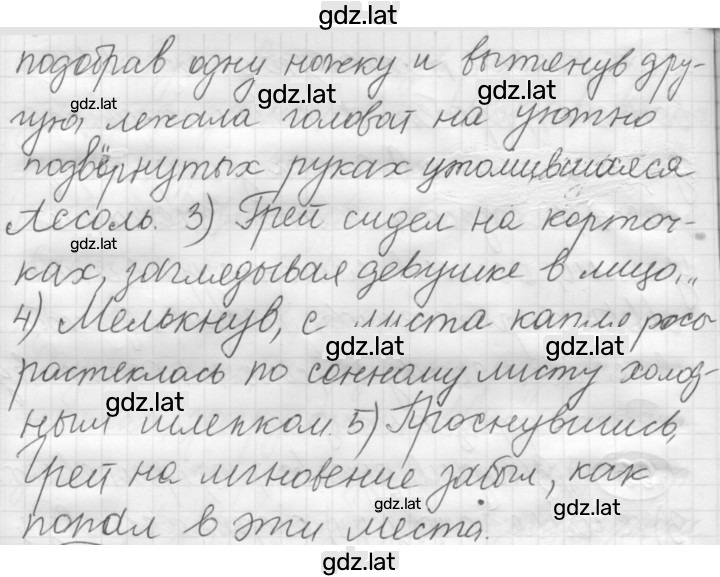 gdz.lat
подобрав одну ножку и вытянув дру-
gdz.lat gdz.lat gdz.lat
гую, лежала головой на уютно
подвёрнутых руках утомившаяся
Ассоль. 3) Грей сидел на корточ-
gdz.lat gdz.lat
ках, заглядывая девушке в лицо.
4) Мелькнув, с листа капля росы
gdz.lat gdz.lat
растеклась по сонному листу холод-
gdz.lat
ным шлепком. 5) Проснувшись,
Грей на мгновение забыл, как
gdz.lat gdz.lat
попал в эти места.
gdz.lat